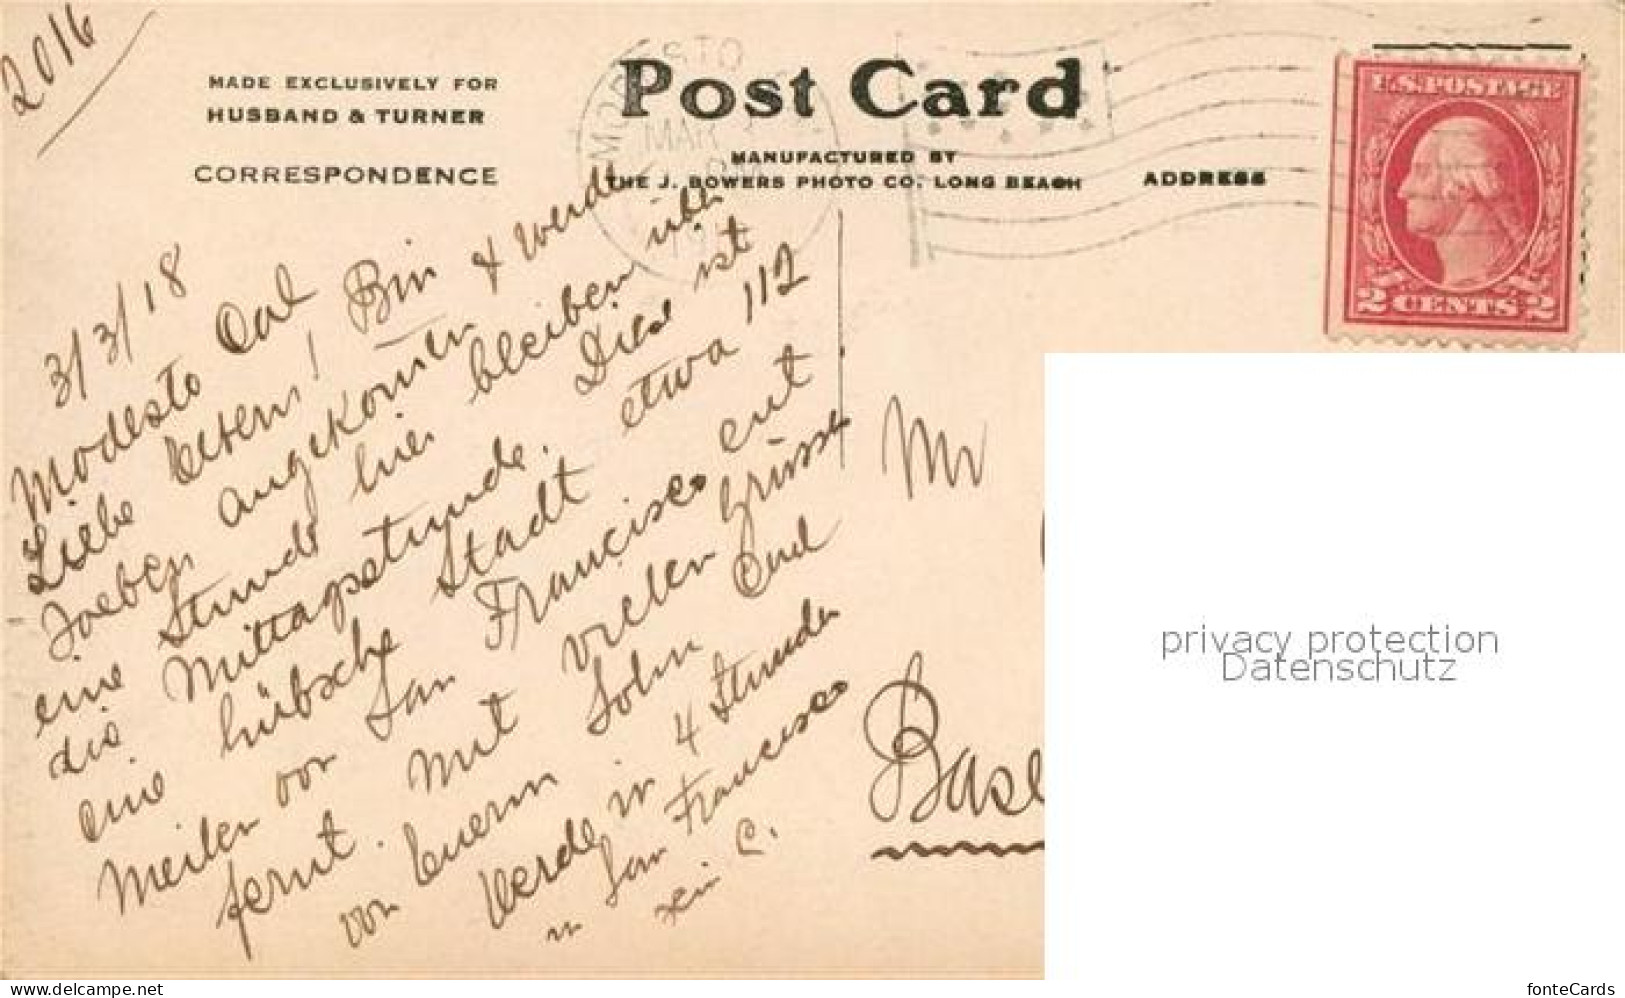 2016
MADE EXCLUSIVELY FOR
HUSBAND & TURNER
CORRESPONDENCE
Post Card
MANUFACTURED BY
THE J. BOWERS PHOTO CO. LONG BEACH
ADDRESS
MODESTO
MAR
U.S. POSTAGE
2 CENTS 2
3/3/18
Modesto Cal
Liebe Eltern! Bin
soeben angekommen & werde
eine Stunde hier bleiben über
die Mittagsstunde. Dies ist
eine hübsche Stadt etwa 112
Meilen von San Francisco ent
fernt. Mit vielen Grüsse
von Euerm Sohn Emil
Werde in 4 Stunden
in San Francisco
sein C.
Mr
Base
privacy protection
Datenschutz
www.delcampe.net
fonteCards